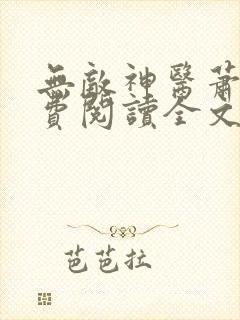 無敵神醫蕭
費閱讀全文
芭芭拉